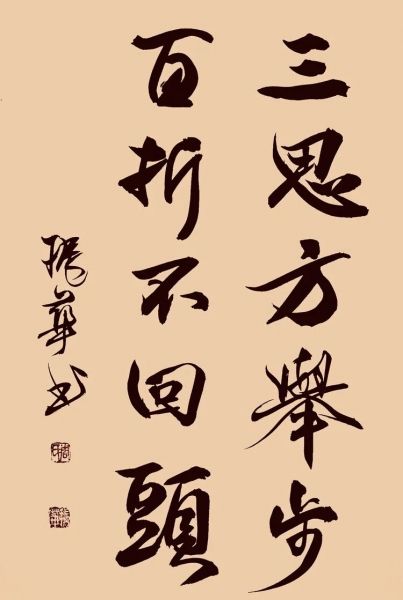 三思方舉步
百折不回頭
振華书